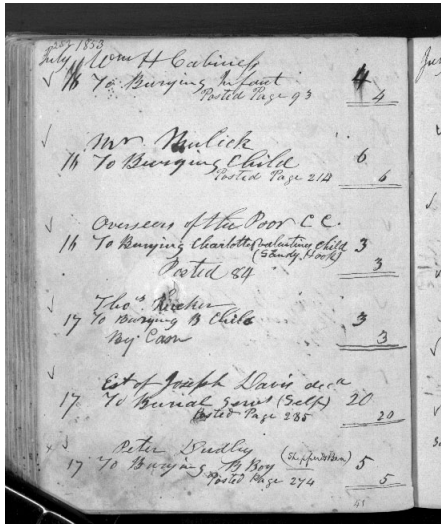 July 1853
Wm H Cabiness
16 To Burying Infant 4
Posted Page 93 4
Mr Mulick
16 To Burying Child 6
Posted Page 214 6
Overseers of the Poor C C.
16 To Burying Charlotte Valentines Child 3
(Sandy Hook)
Posted 84 3
Thos Tucker
17 To Burying B Child 3
By Cash 3
Est of Joseph Davis decd
17 To Burial Servs (Self) 20
Posted Page 285 20
Peter Dudley
17 To Burying B Boy 5
Posted Page 274 5
41